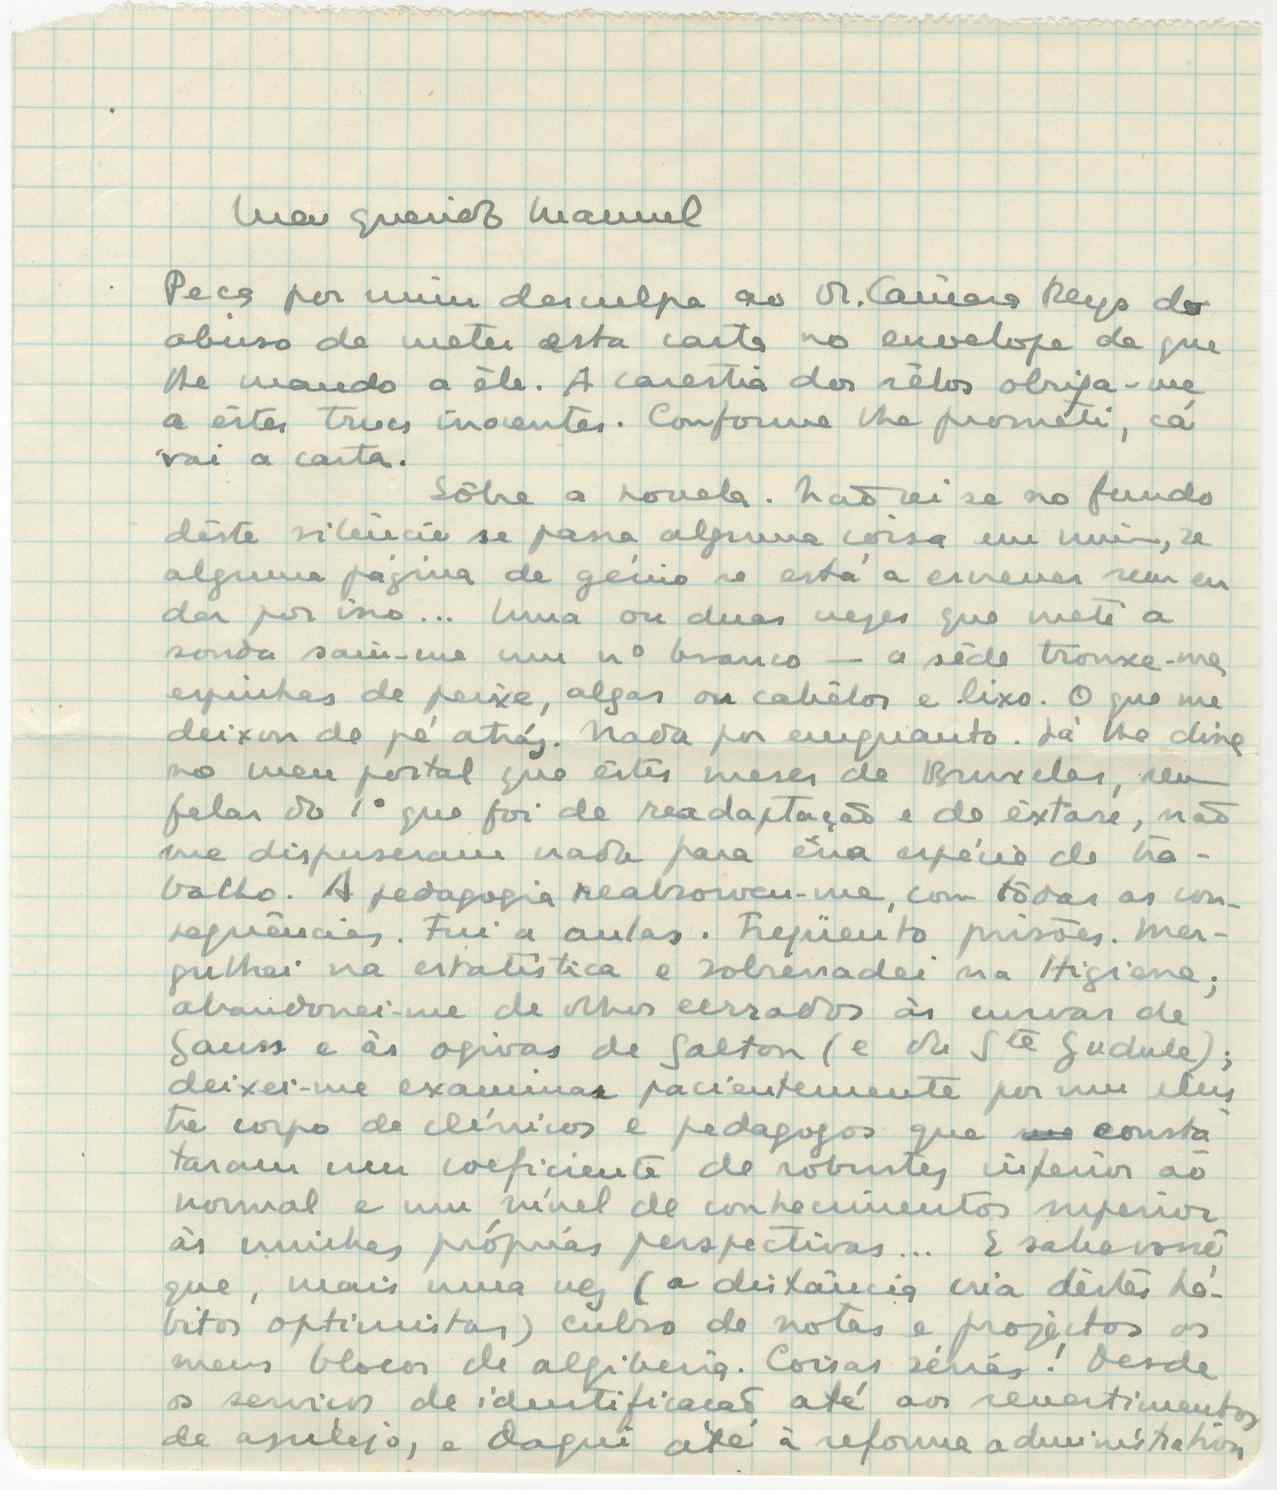 Meu querido Manuel
Peça por mim desculpa ao Dr. Câmara Reys do
abuso de meter esta carta no envelope de que
lhe mando a êle. A carestia dos sêlos obriga-me
a êstes trucs inocentes. Conforme lhe prometi, cá
vai a carta.
Sôbre a novela. Não sei se no fundo
dêste silêncio se passa alguma coisa em mim, se
alguma página de génio se está a escrever sem eu
dar por isso... Uma ou duas vezes que meti a
sonda saíu-me um nº branco — a rêde trouxe-me
espinhas de peixe, algas ou cabêlos e lixo. O que me
deixou de pé atrás. Nada por emquanto. Já lhe disse
no meu postal que êstes meses de Bruxelas, sem
falar do 1º que foi de readaptação e de êxtase, não
me dispuseram nada para essa espécie de tra-
balho. A pedagogia reabsorveu-me, com tôdas as con-
sequências. Fui a aulas. Freqüento prisões. Mer-
gulhei na estatística e sobrenadei na Higiene;
abandonei-me de olhos cerrados às curvas de
Gauss e às ogivas de Galton (e de Ste Gudule);
deixei-me examinar pacientemente por um ilus
tre corpo de clínicos e pedagogos que consta
taram um coeficiente de robustez inferior ao
normal e um nível de conhecimentos superior
às minhas próprias perspectivas... E sabe você
que, mais uma vez (a distância cria dêstes há-
bitos optimistas) cubro de notas e projectos os
meus blocos de algibeira. Coisas sérias! Desde
os serviços de identificação até aos revestimentos
de azulejo, e daqui até à reforma administrativa